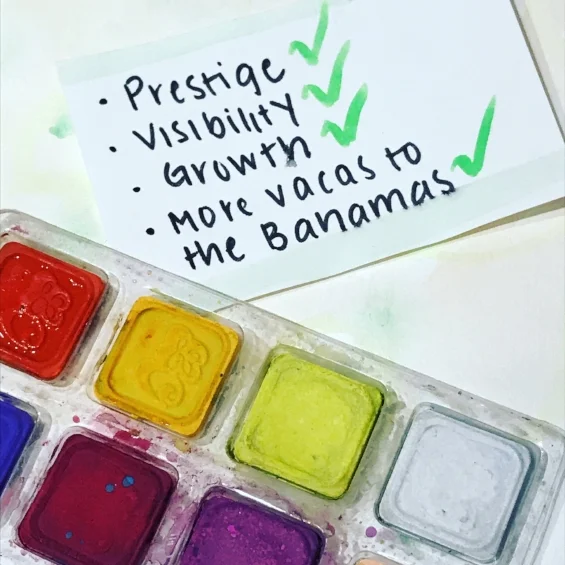 • Prestige ✓
• Visibility ✓
• Growth ✓
• More vacas to
the Banamas ✓